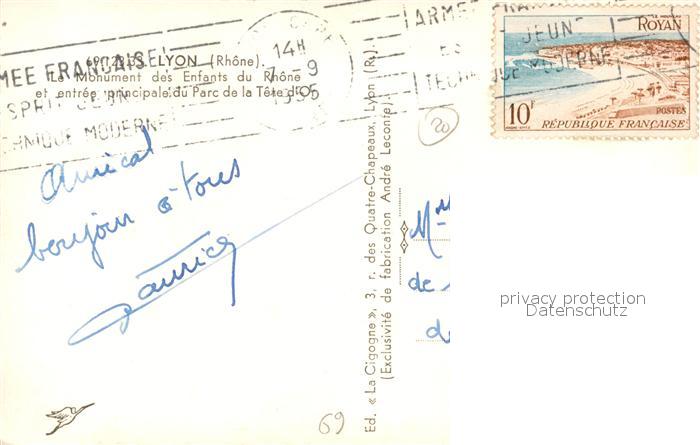 LYON (Rhône).
Le Monument des Enfants du Rhône
et entrée principale du Parc de la Tête d'Or
MÉE FRANÇAISE
ESPRIT JEUNE
TECHNIQUE MODERNE
14H
7-9
1955
ARMÉE FRANÇAISE
ESPRIT JEUN
TECHNIQUE MODERNE
LE NOUVEAU
ROYAN
10F
POSTES
RÉPUBLIQUE FRANÇAISE
20
Amical
bonjour à tous
Ed. « La Cigogne », 3, r. des Quatre-Chapeaux, Lyon (R.)
(Exclusivité de fabrication André Leconte)
Mr
de
de
privacy protection
Datenschutz
69